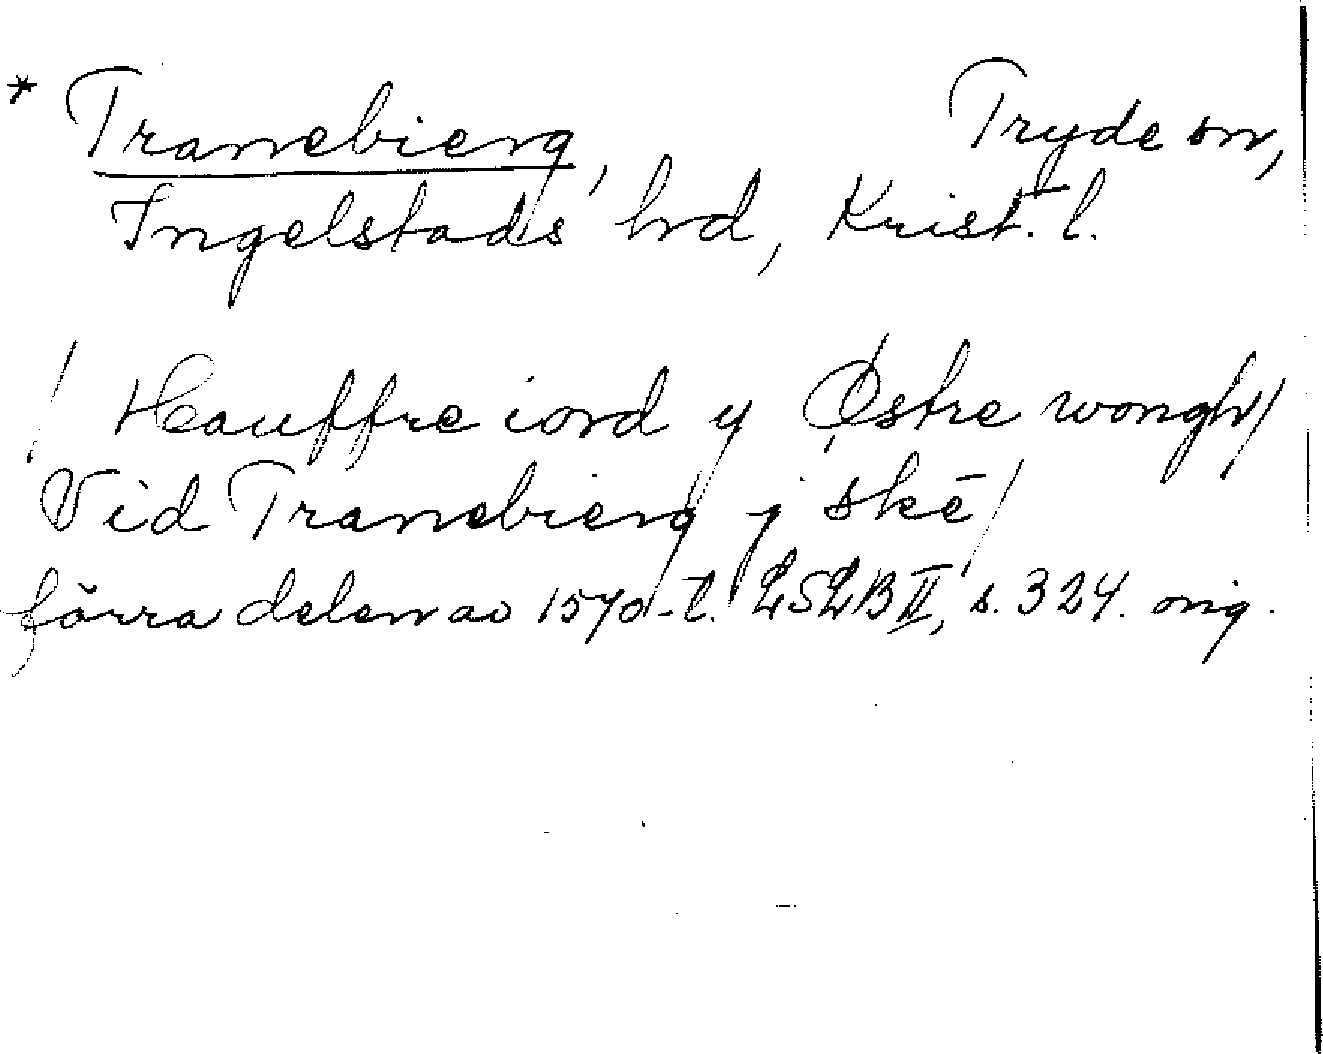 * Tranebierg, Tryde sn,
Ingelstads hrd, Krist. l.
/ Hauffre iord y Østre wongh /
Vid Tranebierg j skē /
förra delen av 1570-t. LSLB II, s. 324. orig.